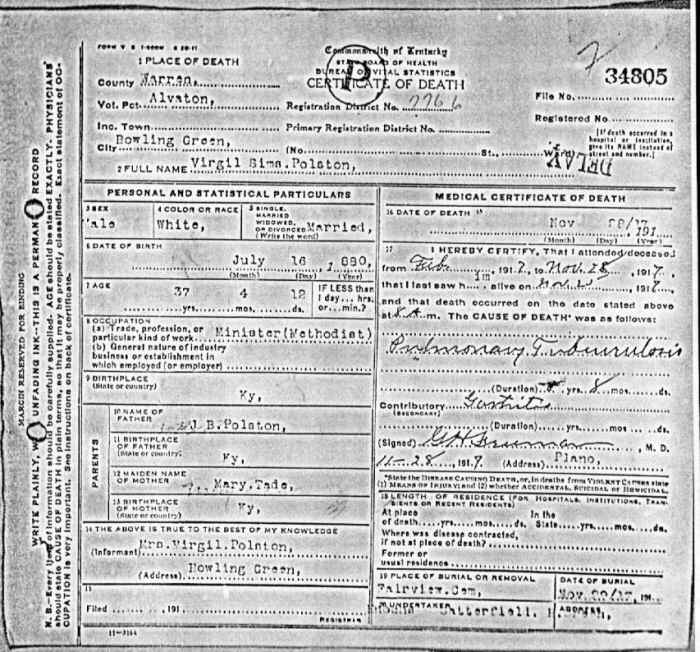 FORM V. S. 1-500M 8 20-11
Commonwealth of Kentucky
STATE BOARD OF HEALTH
BUREAU OF VITAL STATISTICS
CERTIFICATE OF DEATH
P
34805
1 PLACE OF DEATH
County Warren,
Vot. Pct. Alvaton,
Registration District No. 7766
File No.
Inc. Town
Primary Registration District No.
Registered No.
City Bowling Green, (No. St., Ward)
[If death occurred in a hospital or institution, give its NAME instead of street and number.]
2 FULL NAME Virgil Sims.Polston,
PERSONAL AND STATISTICAL PARTICULARS
3 SEX
Male
4 COLOR OR RACE
White,
5 SINGLE, MARRIED WIDOWED, OR DIVORCED (Write the word)
Married,
6 DATE OF BIRTH
July 16 1,880,
(Month) (Day) (Year)
7 AGE
37 yrs. 4 mos. 12 ds.
IF LESS than 1 day... hrs. or...min.?
8 OCCUPATION
(a) Trade, profession, or particular kind of work Minister(Methodist)
(b) General nature of industry
business or establishment in
which employed (or employer)
9 BIRTHPLACE
(State or country) Ky,
PARENTS
10 NAME OF FATHER J.B.Polston,
11 BIRTHPLACE OF FATHER
(State or country) Ky,
12 MAIDEN NAME OF MOTHER Mary.Tade,
13 BIRTHPLACE OF MOTHER
(State or country) Ky,
14 THE ABOVE IS TRUE TO THE BEST OF MY KNOWLEDGE
(Informant) Mrs.Virgil.Polston,
(Address) Bowling Green,
15
Filed 191
REGISTRAR
11-3164
MEDICAL CERTIFICATE OF DEATH
16 DATE OF DEATH
Nov 28/17 191
(Month) (Day) (Year)
17 I HEREBY CERTIFY, That I attended deceased
from Feb 1917, to Nov. 28, 1917
that I last saw him alive on Nov 1917,
and that death occurred on the date stated above
at 8 A.m. The CAUSE OF DEATH* was as follows:
Pulmonary Tuberculosis
(Duration) yrs. 8 mos. ds.
Contributory Gastritis
(SECONDARY)
(Duration) yrs. mos. ds.
(Signed) M. D.
11-28, 1917 (Address) Plano,
*State the DISEASE CAUSING DEATH, or, in deaths from VIOLENT CAUSES state (1) MEANS OF INJURY; and (2) whether ACCIDENTAL, SUICIDAL or HOMICIDAL.
18 LENGTH OF RESIDENCE (FOR HOSPITALS, INSTITUTIONS, TRANSIENTS OR RECENT RESIDENTS)
At place of death yrs. mos. ds. In the State yrs. mos. ds.
Where was disease contracted,
if not at place of death?
Former or
usual residence
19 PLACE OF BURIAL OR REMOVAL
Fairview.Cem,
DATE OF BURIAL
20 UNDERTAKER
ADDRESS,
MARGIN RESERVED FOR BINDING
WRITE PLAINLY, W UNFADING INK—THIS IS A PERMAN RECORD
N. B.—Every item of information should be carefully supplied. AGE should be stated EXACTLY. PHYSICIANS
should state CAUSE OF DEATH in plain terms, so that it may be properly classified. Exact statement of OC-
CUPATION is very important. See instructions on back of certificate.